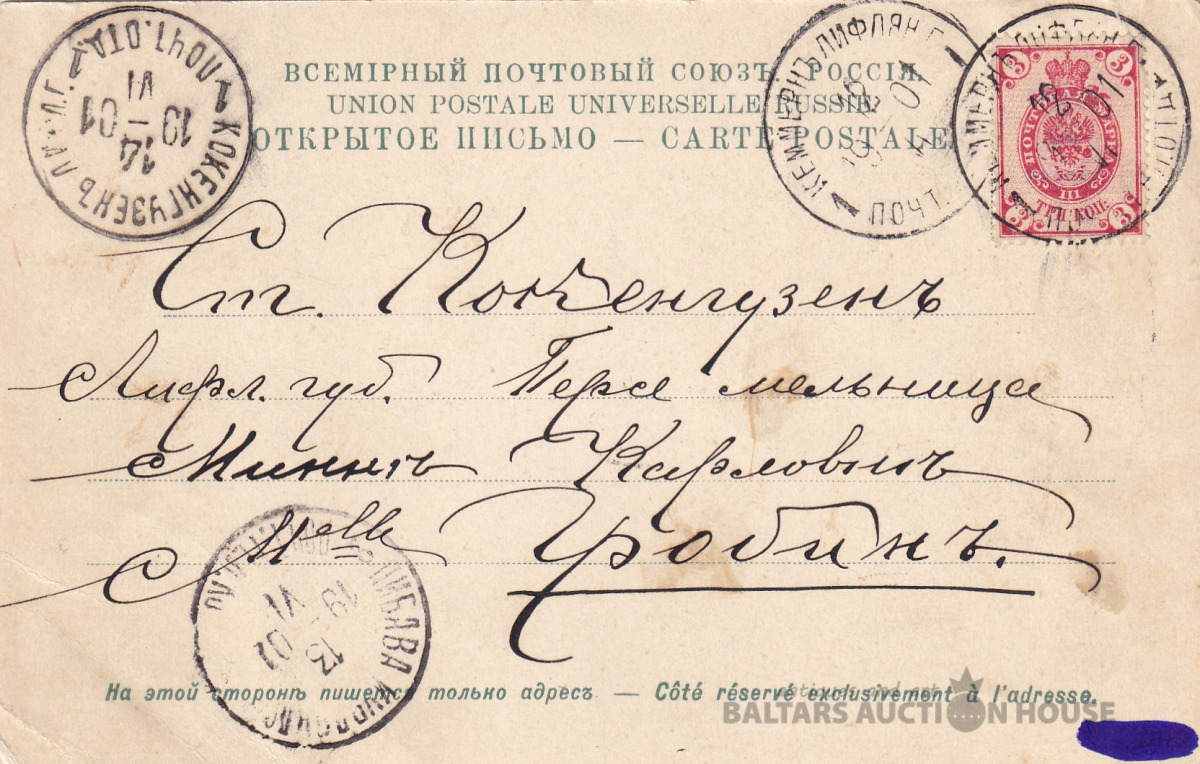 ВСЕМІРНЫЙ ПОЧТОВЫЙ СОЮЗЪ. РОССІЯ.
UNION POSTALE UNIVERSELLE RUSSIE
ОТКРЫТОЕ ПИСЬМО — CARTE POSTALE
КОКЕНГУЗЕНЪ ПОЧТ. ОТД.
14
VI
1901
КЕММЕРНЪ ЛИФЛЯН. Г.
ПОЧТ.
3 3
III
ТРИ КОП.
3 3
Ст. Кокенгузенъ
Лифл. губ. Персе мельница
Миннѣ Карловнѣ
Mlle Гробинъ.
ЛИБАВА
13
VI
1901
На этой сторонѣ пишется только адресъ — Côté réservé exclusivement à l'adresse.
BALTARS AUCTION HOUSE